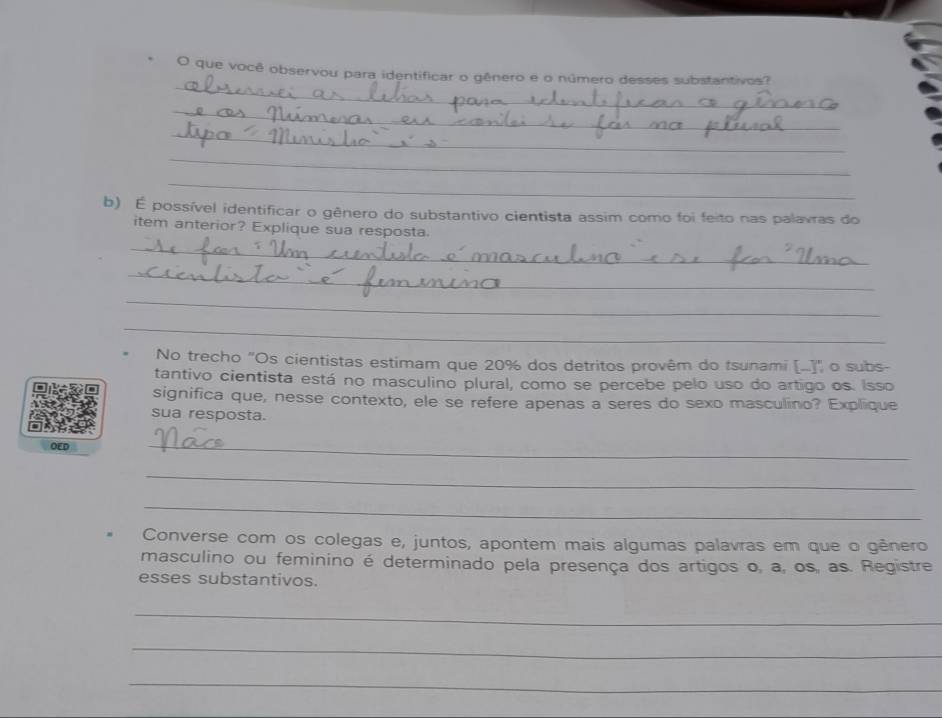 O que você observou para identificar o gênero e o número desses substantivos?
observei as letras para identificar o gênero
e os números eu contei se for no plural
tipo "Ministro"
b) É possível identificar o gênero do substantivo cientista assim como foi feito nas palavras do
item anterior? Explique sua resposta.
se for "Um cientista é masculino e se for "Uma
cientista" é feminino
No trecho "Os cientistas estimam que 20% dos detritos provêm do tsunami [...]", o subs-
tantivo cientista está no masculino plural, como se percebe pelo uso do artigo os. Isso
significa que, nesse contexto, ele se refere apenas a seres do sexo masculino? Explique
sua resposta.
OED
Não
Converse com os colegas e, juntos, apontem mais algumas palavras em que o gênero
masculino ou feminino é determinado pela presença dos artigos o, a, os, as. Registre
esses substantivos.